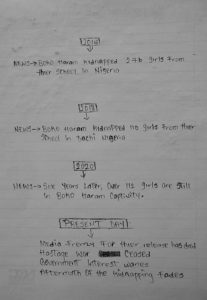 2014
NEWS → BOKO Haram Kidnapped 276 girls From
their School in Nigeria
2018
NEWS → BOKO Haram Kidnapped 110 girls From their
School in Dapchi Nigeria
2020
NEWS → Six Years Later, Over 112 girls are Still
in BOKO Haram Captivity.
PRESENT DAY
Media Frenzy For their release has died
Hostage War Ceased
Government interest wanes
Aftermath OF the Kidnapping Fades